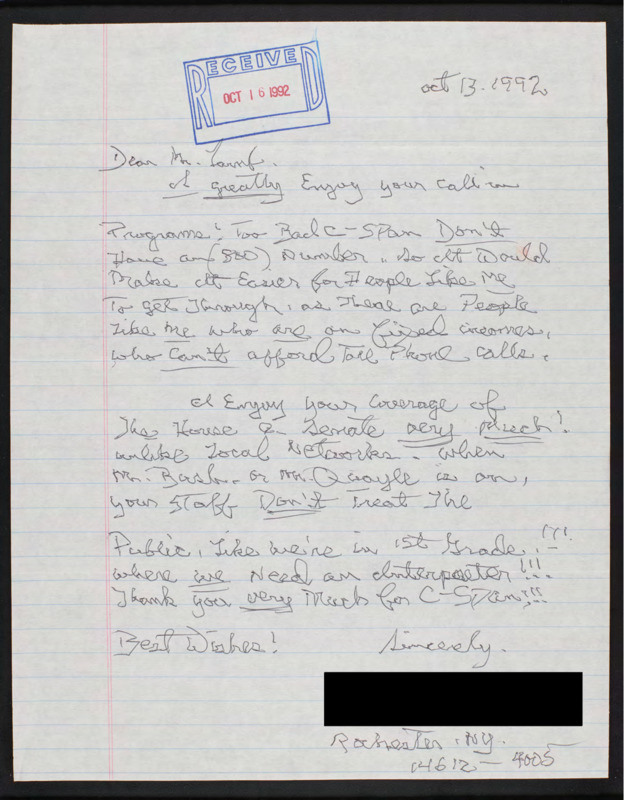 RECEIVED
OCT 16 1992
Oct 13. 1992
Dear Mr. Lamb.
I greatly Enjoy your Call in
Programs! Too Bad C-SPan Don't
Have an (800) Number. So it Would
Make it Easier for People Like Me
To get Through, as There are People
Like Me who are on fixed incomes,
who Can't afford Toll Phone Calls.
I Enjoy your Coverage of
The House & Senate very Much!
unlike Local Networks. when
Mr. Bush. or Mr. Quayle is on,
your Staff Don't Treat The
Public, Like we're in 1st Grade.!!!
where we Need an Interpeter!!!
Thank you very Much for C-SPan!!!
Best Wishes! Sincerely.
Rochester, NY.
14612-4005